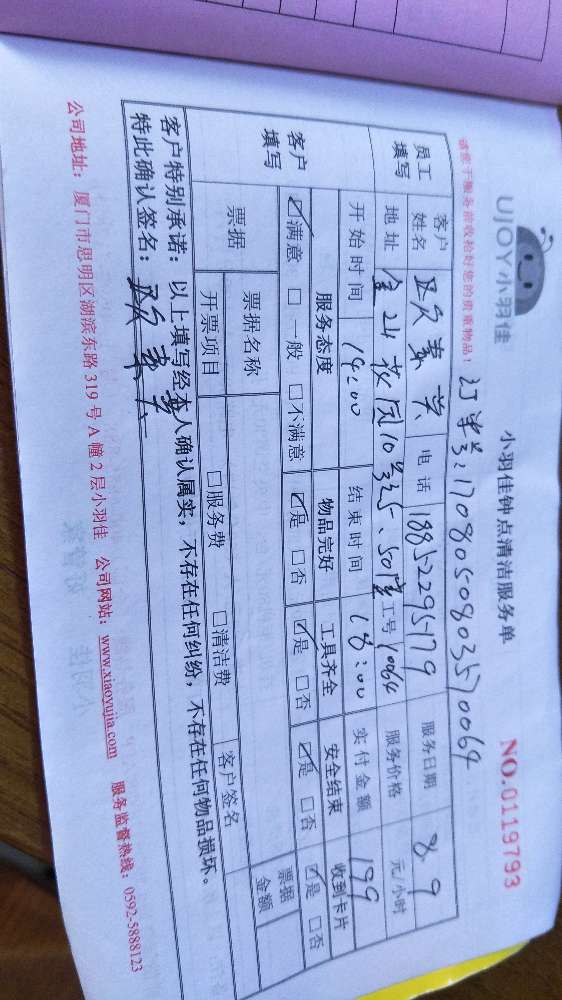 UJOY小羽佳
小羽佳钟点清洁服务单
NO.0119793
请您于服务前收拾好您的贵重物品!
订单号:1708050803570064
员工填写
客户姓名 电话 18852295179 服务日期 8.9
地址 金 园10号 工号 10064 服务价格 元/小时
开始时间 14:00 结束时间 18:00 实付金额 199
客户填写
服务态度 物品完好 工具齐全 安全结束 收到卡片
☑满意 □一般 □不满意 ☑是 □否 ☑是 □否 ☑是 □否 ☑是 □否
票据 票据名称 客户签名 票据金额
开票项目 □服务费 □清洁费
客户特别承诺:以上填写经本人确认属实,不存在任何纠纷,不存在任何物品损坏。
特此确认签名:
公司地址:厦门市思明区湖滨东路319号A幢2层小羽佳 公司网站:www.xiaoyujia.com 服务监督热线:0592-5888123